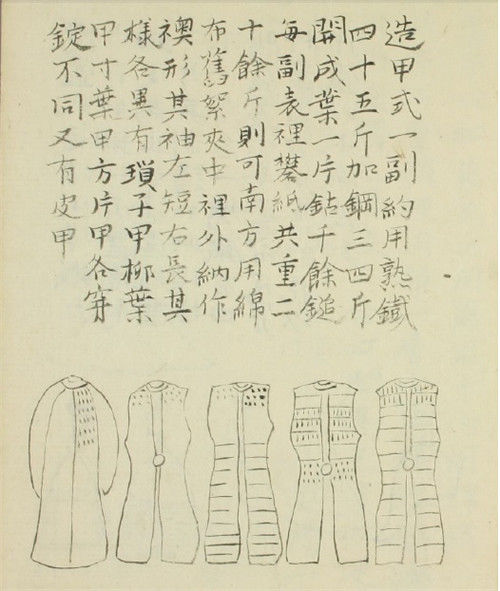 造甲式一副約用熟鐵
四十五斤加鋼三四斤
開成葉一片鉆千餘鎚
每副表裡礬紙共重二
十餘斤則可南方用綿
布舊絮夾中裡外納作
襖形其袖左短右長其
樣各異有瑣子甲柳葉
甲寸葉甲方片甲各穿
錠不同又有皮甲